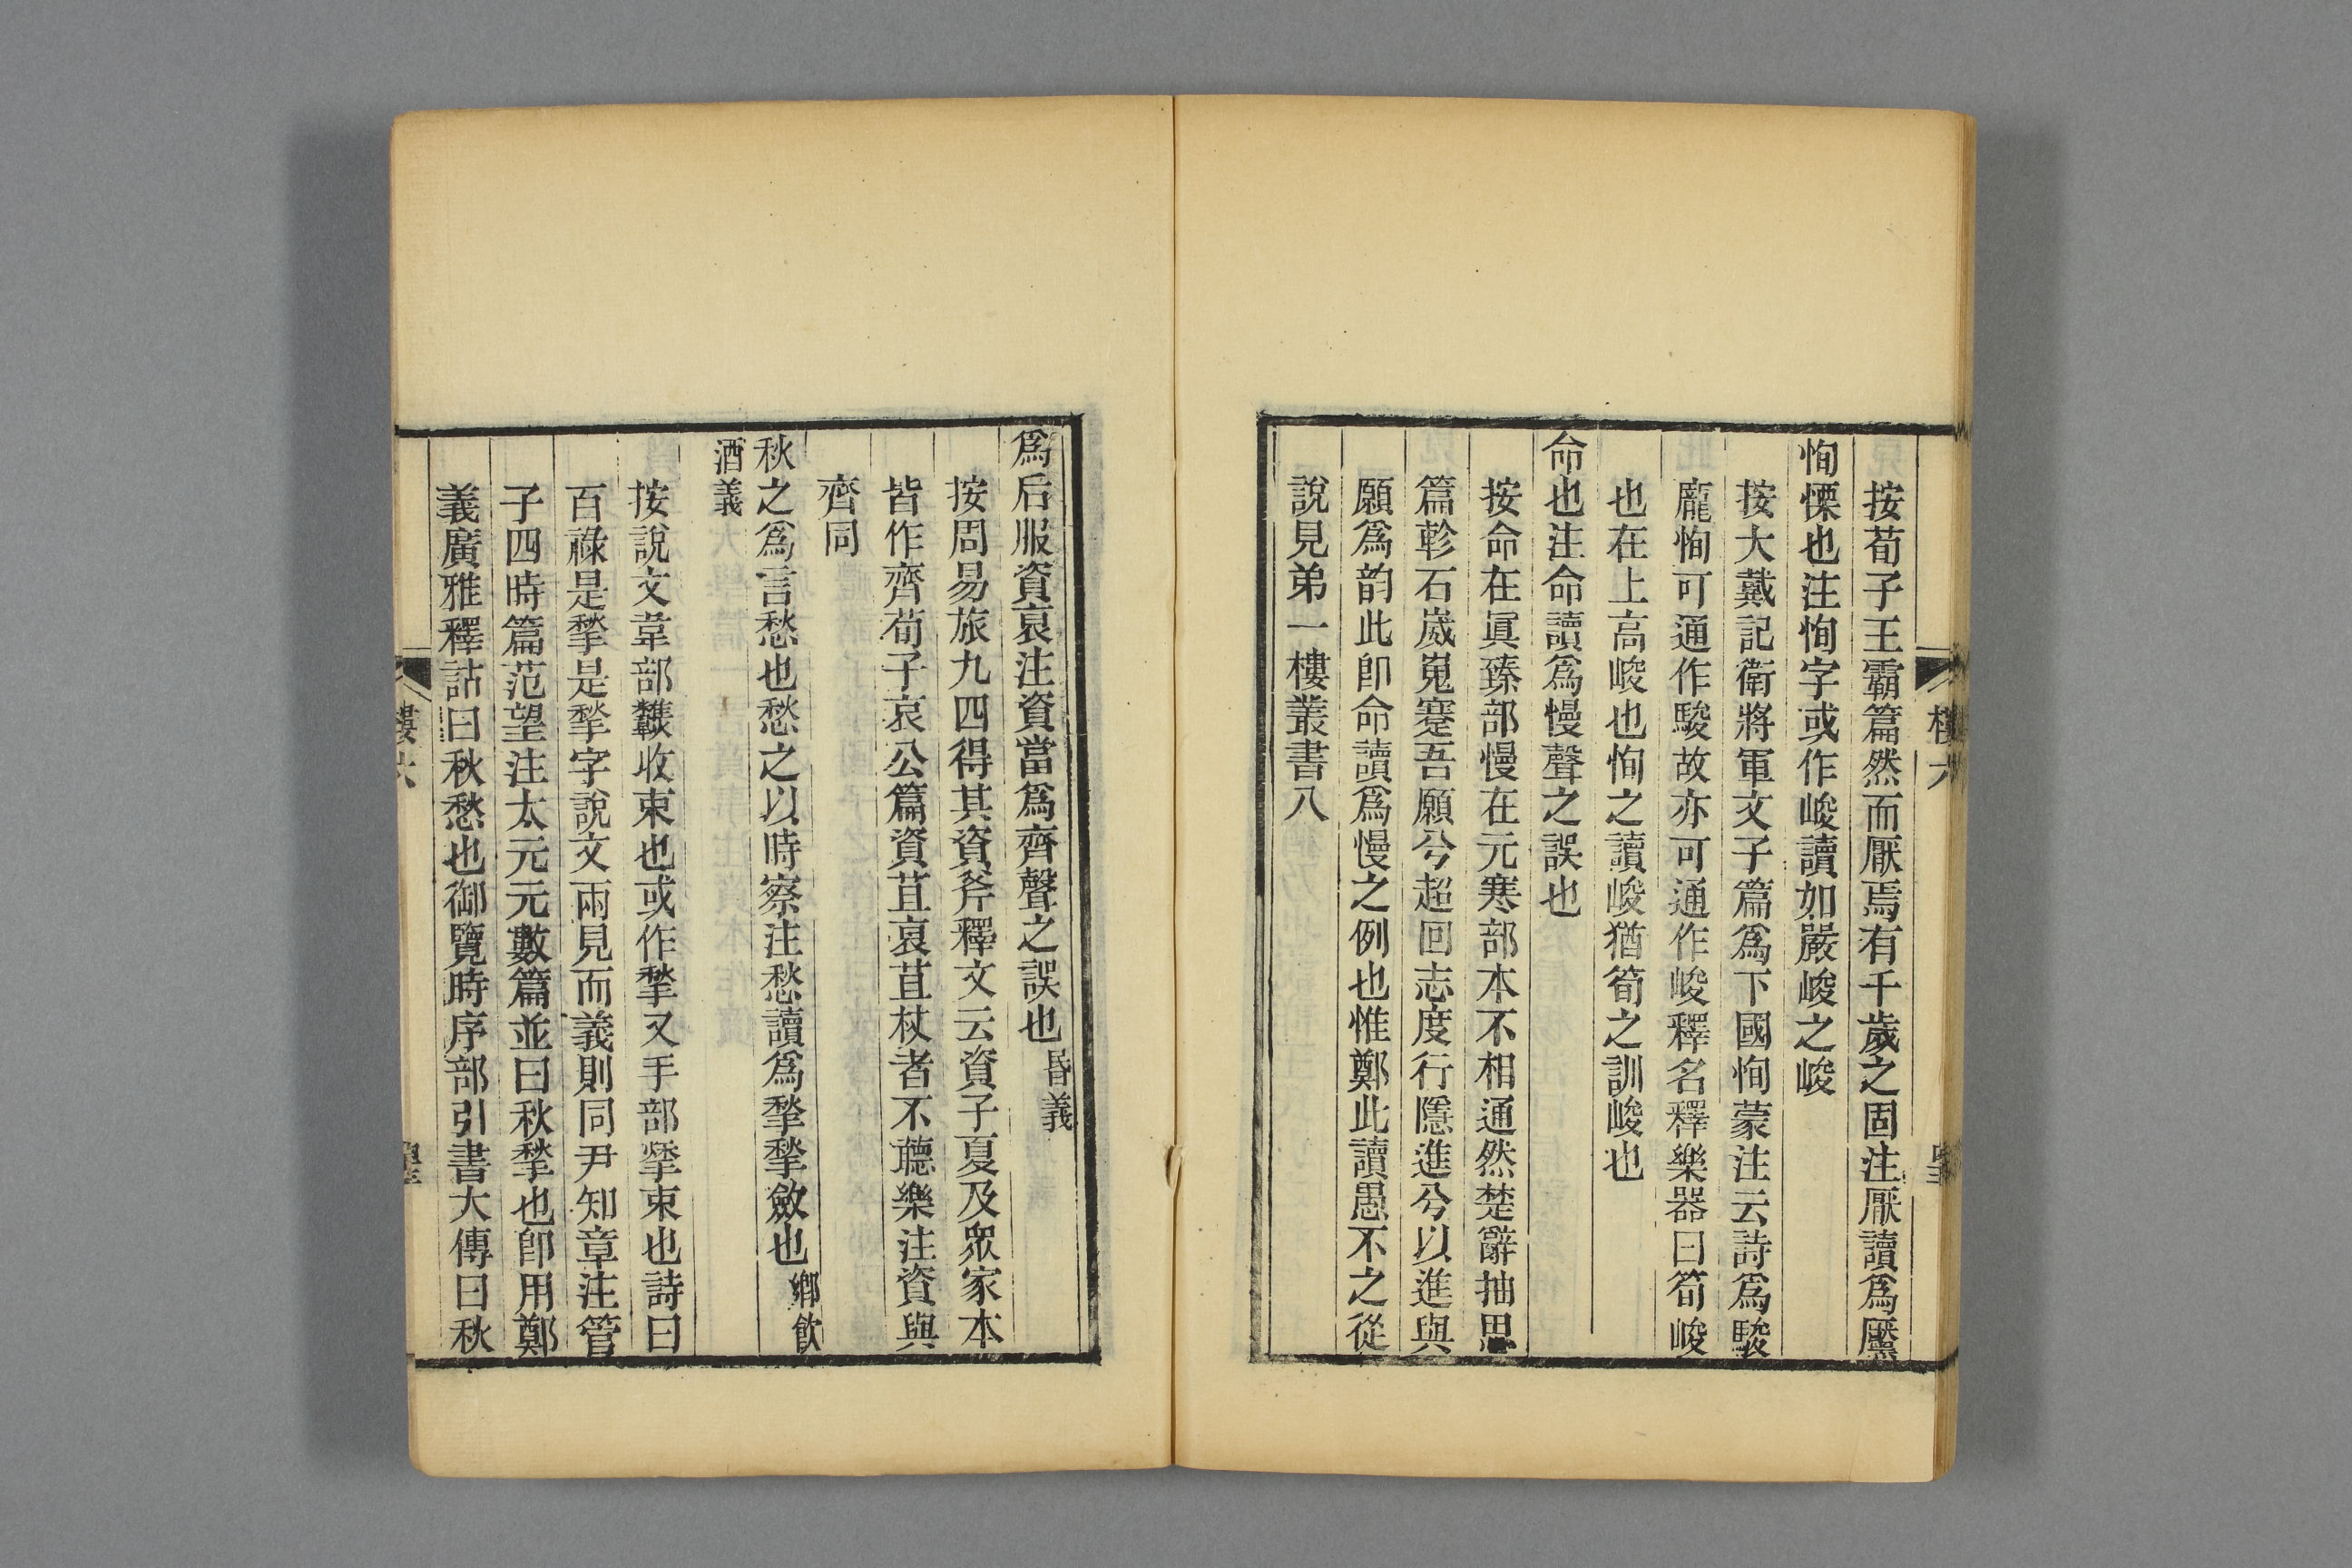 按荀子王霸篇然而厭焉有千歲之固注厭讀爲黶
恂慄也注恂字或作峻讀如嚴峻之峻
按大戴記衛將軍文子篇爲下國恂蒙注云詩爲駿
龐恂可通作駿故亦可通作峻釋名釋樂器曰筍峻
也在上高峻也恂之讀峻猶筍之訓峻也
命也注命讀爲慢聲之誤也
按命在眞臻部慢在元寒部本不相通然楚辭抽思
篇軫石崴嵬蹇吾願兮超回志度行隱進兮以進與
願爲韵此卽命讀爲慢之例也惟鄭此讀愚不之從
說見弟一樓叢書八
樓六
爲后服資哀注資當爲齊聲之誤也昏義
按周易旅九四得其資斧釋文云資子夏及眾家本
皆作齊荀子哀公篇資苴哀苴杖者不聽樂注資與
齊同
秋之爲言愁也愁之以時察注愁讀爲揫揫斂也鄉飮
酒義
按說文韋部䪐收束也或作揫又手部揫束也詩曰
百祿是揫是揫字說文兩見而義則同尹知章注管
子四時篇范望注太元元數篇並曰秋揫也卽用鄭
義廣雅釋詁曰秋愁也御覽時序部引書大傳曰秋
樓六